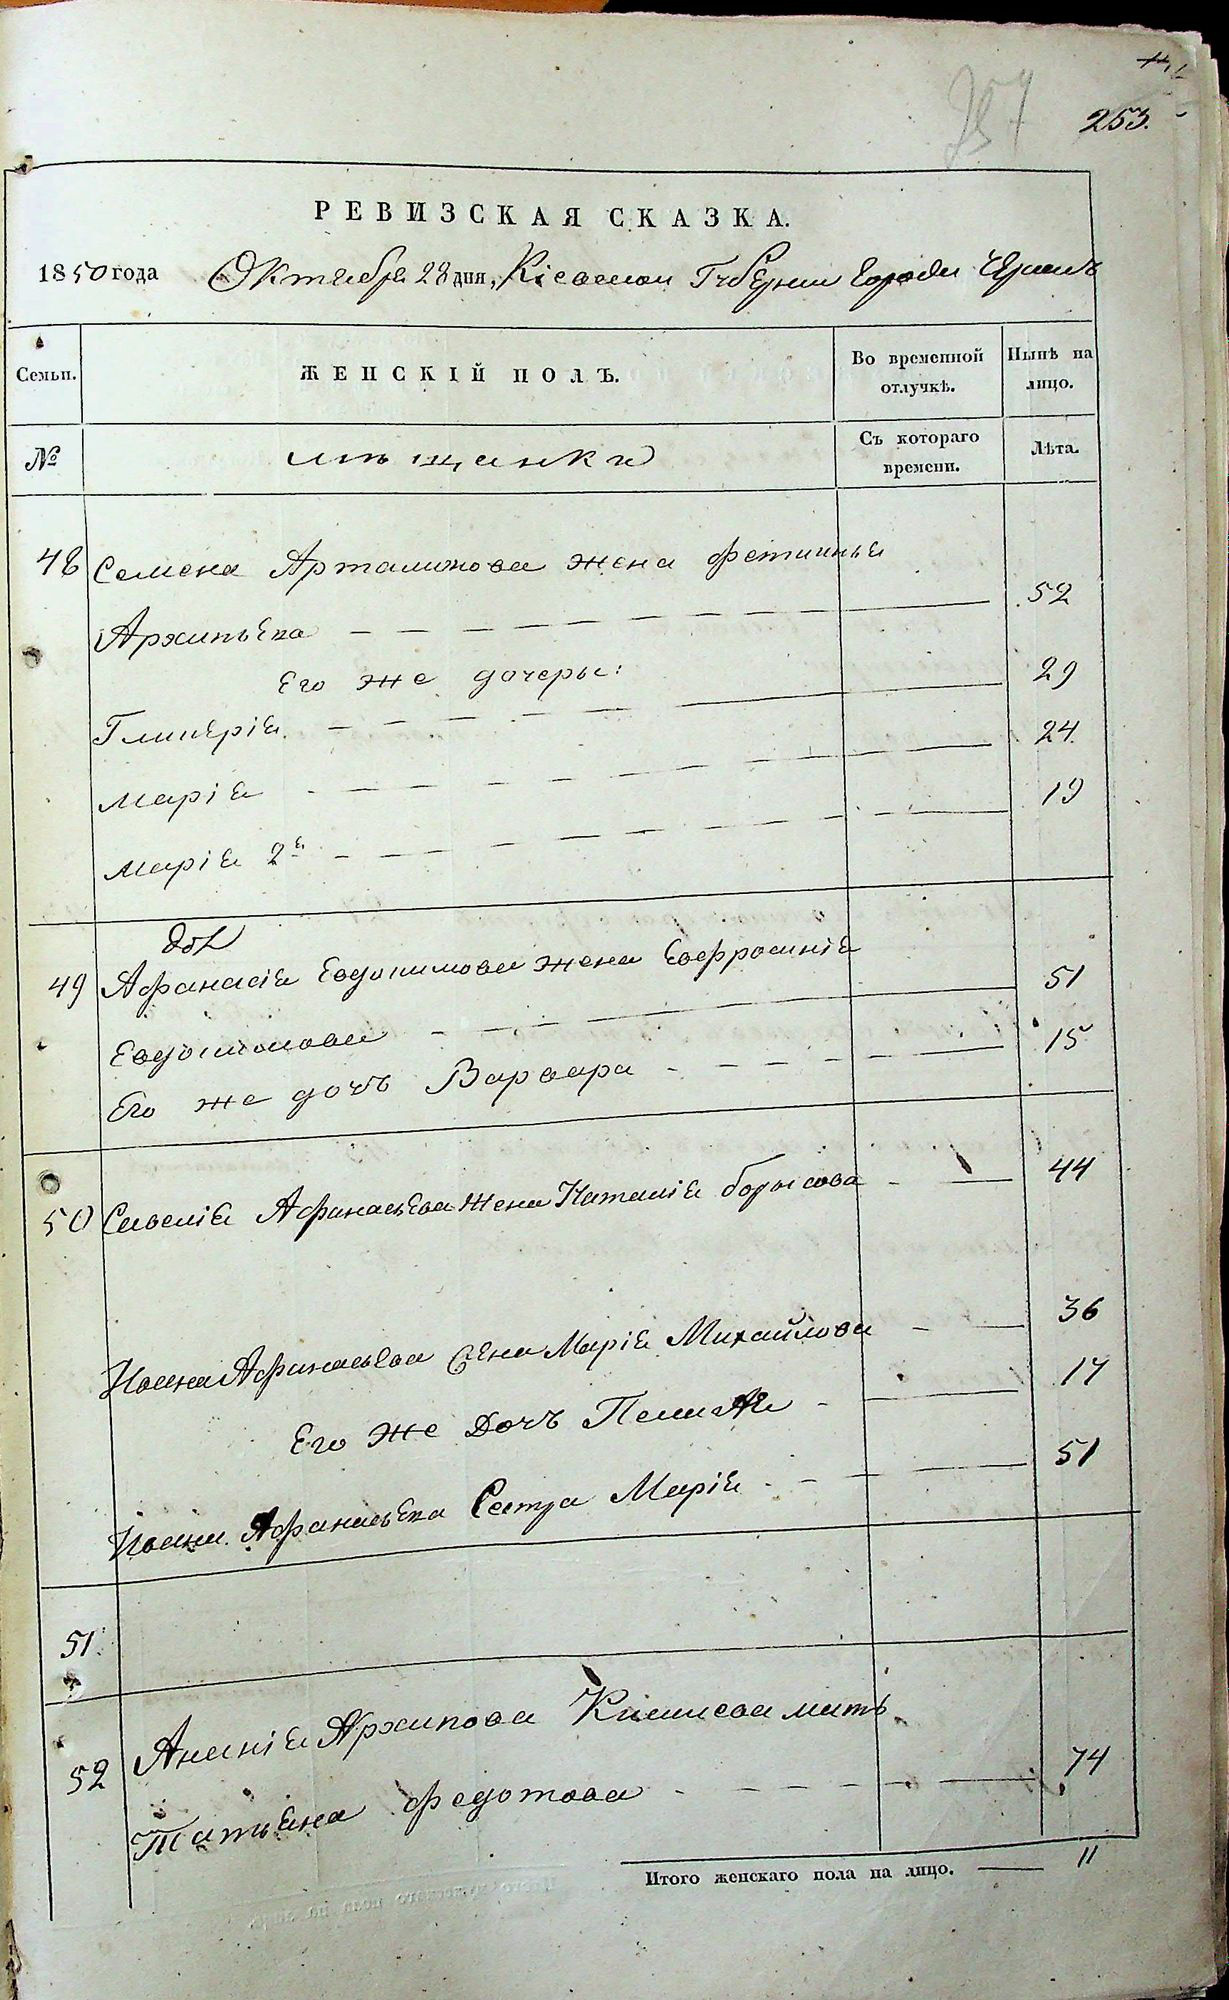 253.
РЕВИЗСКАЯ СКАЗКА.
1850 года Октября 28 дня, Кіевской Губерніи города
Семьи.
ЖЕНСКІЙ ПОЛЪ.
Во временной отлучкѣ.
Нынѣ на лицо.
№
мѣщанки
Съ котораго времени.
Лѣта.
48 Семена Артамонова жена Фетиния
Архипьева 52
Его же дочеры:
Гликерія 29
Марія 24
Марія 2я 19
49 Афанасія Евдокимова жена Евфросинія
Евдокимова 51
Его же дочь Варвара 15
50 Савелія Афанасьева жена Наталія Борисова 44
Ивана Афанасьева жена Марія Михайлова 36
Его же Дочь Пелагея 17
Ивана Афанасьева Сестра Марія 51
51.
52 Ананія Архипова мать
Татьяна Федотова 74
Итого женскаго пола на лицо. 11